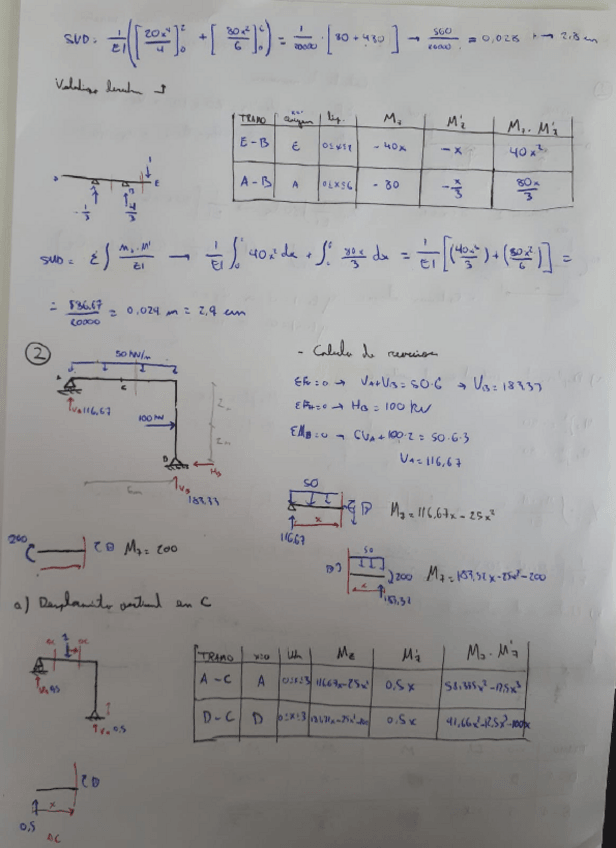 SVD: 1/EI ([20x⁴/4]₀² + [80x²/6]₀⁶) = 1/20000 · [80 + 480] → 560/20000 = 0,028 → 2,8 cm
TRAMO | x=0 origen | lim. | Mz | M'z | Mz · M'z
E-B | E | 0≤x≤2 | -40x | -x | 40x²
A-B | A | 0≤x≤6 | -80 | -x/3 | 80x/3
A B E
1/3 4/3 1
SVD = Σ∫ Mz·M'/EI → 1/EI ∫ 40x² dx + ∫ 80x/3 dx = 1/EI [(40x³/3) + (80x²/6)] =
= /20000 = 0,029 m = 2,9 cm
2
50 kN/m
C
VA 116,67
100 kN
2m
2m
D
6m
HB
VB
183,33
- Calculo de reacciones
ΣFV=0 → VA+VB = 50·6 → VB = 183,33
ΣFH=0 → HB = 100 kN
ΣMB=0 → 6VA + 100·2 = 50·6·3
VA = 116,67
50
116,67
x
Mz = 116,67x - 25x²
200
Mz = 200
50
200
183,33
Mz = 183,33x - 25x² - 200
a) Desplazamiento vertical en C
1
VA 0,5
VB 0,5
TRAMO | x=0 | Lim | Mz | M'z | Mz · M'z
A-C | A | 0≤x≤3 | 116,67x-25x² | 0,5x | 58,335x²-12,5x³
D-C | D | 0≤x≤3 | 183,33x-25x²-200 | 0,5x | 91,66x²-12,5x³-100x
0,5
x
AC